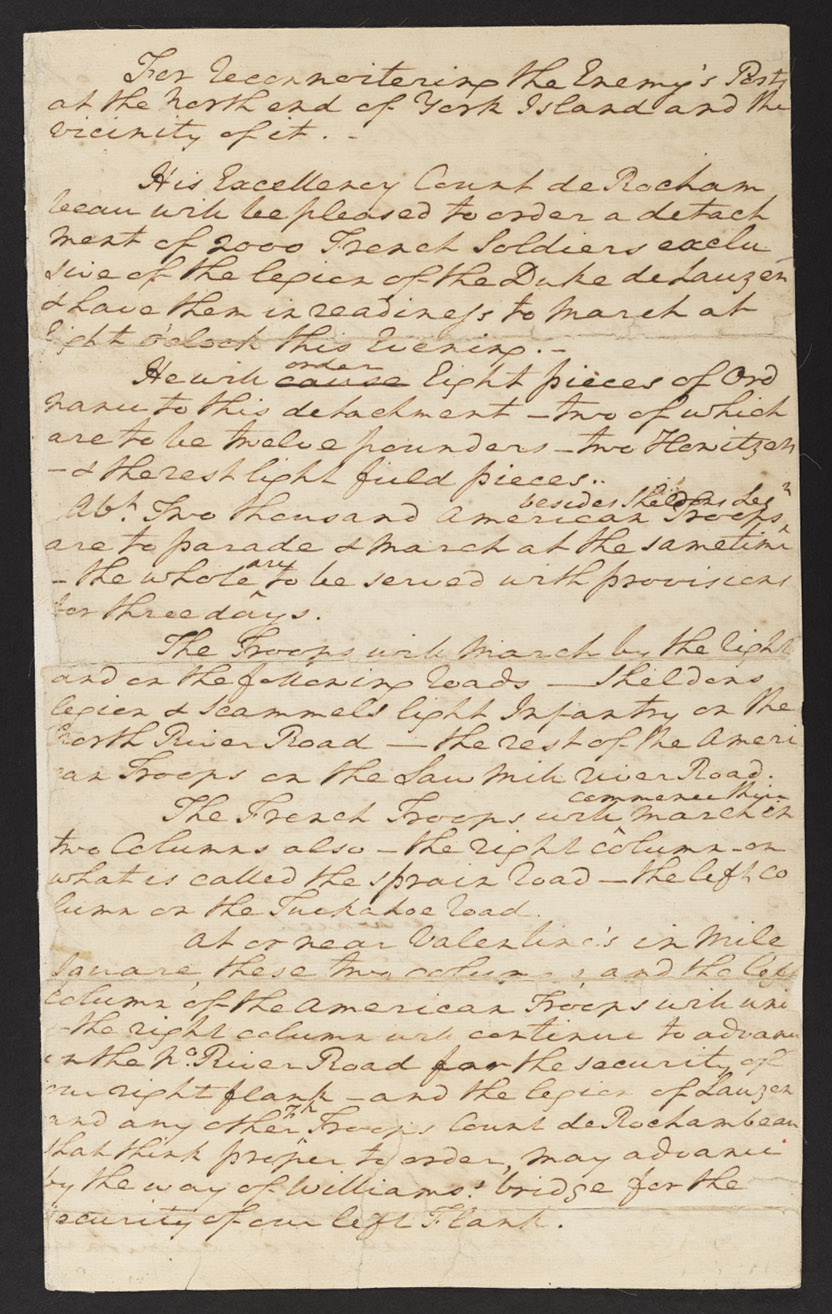 For Reconnoitering the Enemy's Posts
at the North end of York Island and the
vicinity of it. -
His Excellency Count de Rocham
beau will be pleased to order a detach
ment of 2000 French Soldiers exclu
sive of the legion of the Duke de Lauzen
& have them in readiness to March at
Eight o'clock this Evening. -
order
He will cause Eight pieces of Ord
nance to this detachment - two of which
are to be twelve pounders - two Howitzers
- & the rest light field pieces..
besides Sheldons Legn
Abt. Two thousand American Troops,
are to parade & march at the same time
are
- the whole to be served with provisions
for three days.
The Troops will March by the right
and on the following roads - Sheldons
legion & Scammels light Infantry on the
North River Road - the rest of the Ameri
can Troops on the Saw Mill River Road.
commence their
The French Troops will march in
two Columns also - the right column on
what is called the sprain road - the left co
lumn on the Tuckahoe road.
At or near Valentine's in Mile
Square, these two columns and the left
column of the American Troops will uni
- the right column will continue to advance
on the No. River Road for the security of
our right flank - and the legion of Lauzen
Fh
and any other Troops Count de Rochambeau
shall think proper to order, may advance
by the way of Williams's bridge for the
security of our left Flank.